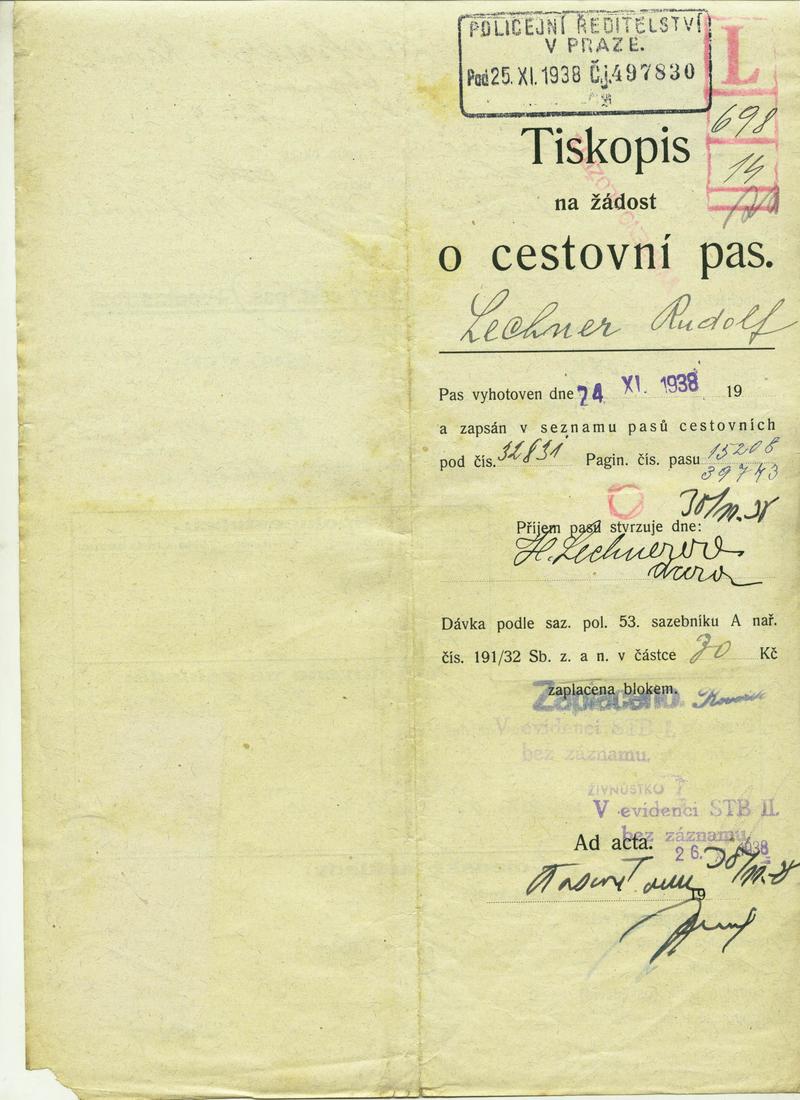 POLICEJNÍ ŘEDITELSTVÍ
V PRAZE.
Pod 25. XI. 1938 Čj. 497830
L
698
14
Tiskopis
na žádost
o cestovní pas.
Lechner Rudolf
Pas vyhotoven dne 24 XI. 1938 19
a zapsán v seznamu pasů cestovních
pod čís. 32831 Pagin. čís. pasu 15208
39773
30/11.38
Příjem pasu stvrzuje dne:
H. Lechnerová
Dávka podle saz. pol. 53. sazebníku A nař.
čís. 191/32 Sb. z. a n. v částce 30 Kč
zaplacena blokem.
Zaplaceno.
V evidenci STB I.
bez záznamu.
V evidenci STB II.
bez záznamu.
Ad acta.
26. 1938
19